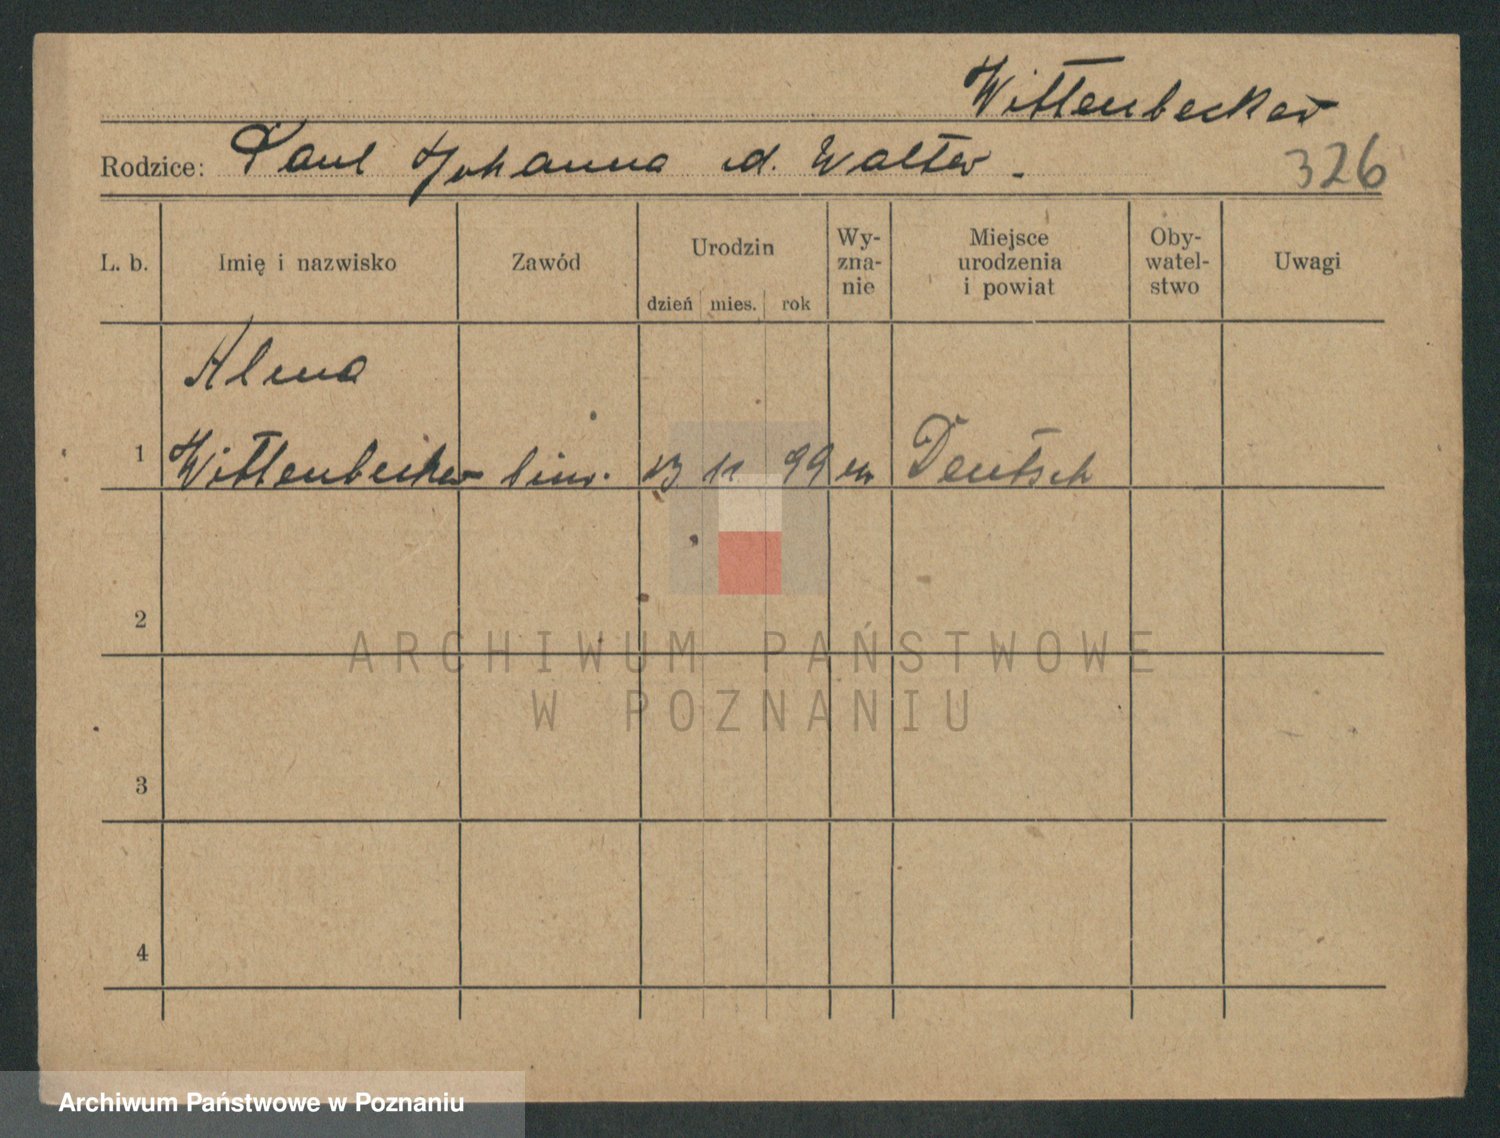 Wittenbecker
Rodzice: Paul Johanna d. Walter.
326
L. b. Imię i nazwisko Zawód Urodzin dzień mies. rok Wy-zna-nie Miejsce urodzenia i powiat Oby-watel-stwo Uwagi
Alma
1 Wittenbecker 13 11 99 ew Deutsch
2
ARCHIWUM PAŃSTWOWE
W POZNANIU
3
4
Archiwum Państwowe w Poznaniu